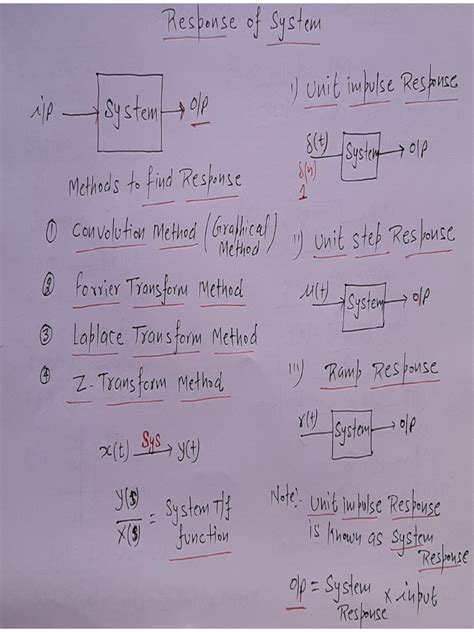 Response of System
i/p System o/p
Methods to find Response
① Convolution Method (Graphical Method)
② Forrier Transform Method
③ Laplace Transform Method
④ Z-Transform Method
x(t) Sys y(t)
Y(s)/X(s) = System T/f function
i) Unit impulse Response
δ(t) System o/p
δ(n)
1
ii) Unit step Response
u(t) System o/p
iii) Ramp Response
r(t) System o/p
Note:- Unit impulse Response
is known as System
Response
o/p = System Response × input